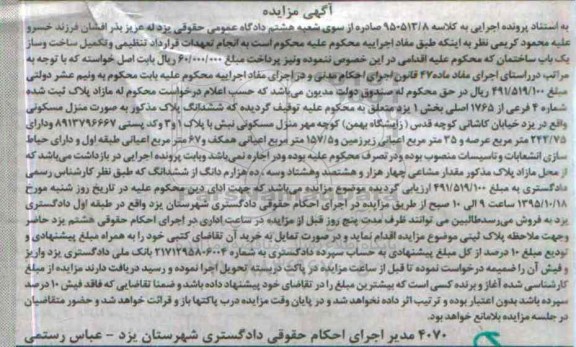 آگهی مزایده
به استناد پرونده اجرایی به کلاسه ۹۵۰۵۱۳/۸ صادره از سوی شعبه هشتم دادگاه عمومی حقوقی یزد له عزیز بذر افشان فرزند خسرو و
علیه محمود کریمی نظر به اینکه طبق مفاد اجراییه محکوم علیه محکوم است به انجام تعهدات قرارداد تنظیمی و تکمیل ساخت و ساز
یک باب ساختمان که محکوم علیه اقدامی در این خصوص ننموده ونیز پرداخت مبلغ ۶۰/۰۰۰/۰۰۰ ریال بابت اصل خواسته که با توجه به
مراتب درراستای اجرای مفاد ماده ۴۷ قانون اجرای احکام مدنی و در اجرای مفاد اجراییه محکوم علیه بابت محکوم به ونیم عشر دولتی
مبلغ ۴۹۱/۵۱۹/۱۰۰ ریال در حق محکوم له صندوق دولت مدیون می‌باشد که حسب اعلام درخواست محکوم له مازاد پلاک ثبت شده
شماره ۴ فرعی از ۱۷۶۵ اصلی بخش ۱ یزد متعلق به محکوم علیه توقیف گردیده که ششدانگ پلاک مذکور به صورت منزل مسکونی
واقع در یزد خیابان کاشانی کوچه قدس (زایشگاه بهمن) کوچه مهر منزل مسکونی نبش با پلاک ۱ و ۳ و کد پستی ۸۹۱۳۷۹۶۶۶۷ ودارای
۲۴۲/۷۵ متر مربع عرصه و ۳۵ متر مربع اعیانی زیرزمین و ۱۵۷/۵ متر مربع اعیانی همکف و ۶۷ متر مربع اعیانی طبقه اول و دارای حیاط
سازی انشعابات و تاسیسات منصوب بوده ودر تصرف محکوم علیه بوده ودر اجاره نمی‌باشد وبابت پرونده اجرایی در بازداشت می‌باشد که
از محل مازاد پلاک مذکور مقدار مشاعی چهار هزار و هشتصد وهشتاد وسه، ده هزارم دانگ از ششدانگ که طبق نظر کارشناس رسمی
دادگستری به مبلغ ۴۹۱/۵۱۹/۱۰۰ ارزیابی گردیده موضوع مزایده می‌باشد که جهت ادای دین محکوم علیه در تاریخ روز شنبه مورخ
۱۳۹۵/۱۰/۱۸ ساعت ۹ الی ۱۰ صبح از طریق مزایده در اجرای احکام حقوقی دادگستری شهرستان یزد واقع در طبقه اول دادگستری
یزد به فروش می‌رسدطالبین می توانند ظرف مدت پنج روز قبل از مزایده در ساعت اداری در اجرای احکام حقوقی هشتم یزد حاضر
وجهت ملاحظه پلاک ثبتی موضوع مزایده اقدام نماید و در صورت تمایل به خرید آن تقاضای کتبی خود را به همراه مبلغ پیشنهادی و
تودیع مبلغ ۱۰ درصد از کل مبلغ پیشنهادی به حساب سپرده دادگستری به شماره ۲۱۷۱۲۹۵۸۰۶۰۰۴ بانک ملی دادگستری یزد واریز
و فیش آن را ضمیمه درخواست نموده تا قبل از ساعت مزایده در پاکت دربسته تحویل اجرا نموده و رسید دریافت دارند مزایده از مبلغ
کارشناسی شده آغاز و برنده کسی است که بیشترین مبلغ را در تقاضای خود پیشنهاد داده باشد و ضمنا تقاضایی که فاقد فیش ۱۰ درصد
سپرده باشد بدون اعتبار بوده و ترتیب اثر داده نخواهد شد و در پایان وقت مزایده درب پاکتها باز و قرائت خواهد شد و حضور متقاضیان
در جلسه مزایده بلامانع خواهد بود.
۴۰۷۰ مدیر اجرای احکام حقوقی دادگستری شهرستان یزد - عباس رستمی